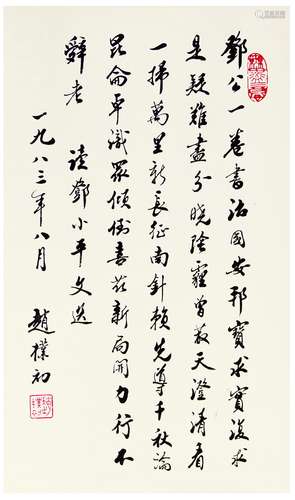 鄧公一卷書治國安邦寶求實復求
是疑難盡分曉陰霾曾蔽天澄清看
一掃萬里新長征南針賴先導千秋論
昆侖平議眾傾倒喜茲新局開力行不
辭老 读鄧小平文选
一九八三年八月 趙樸初